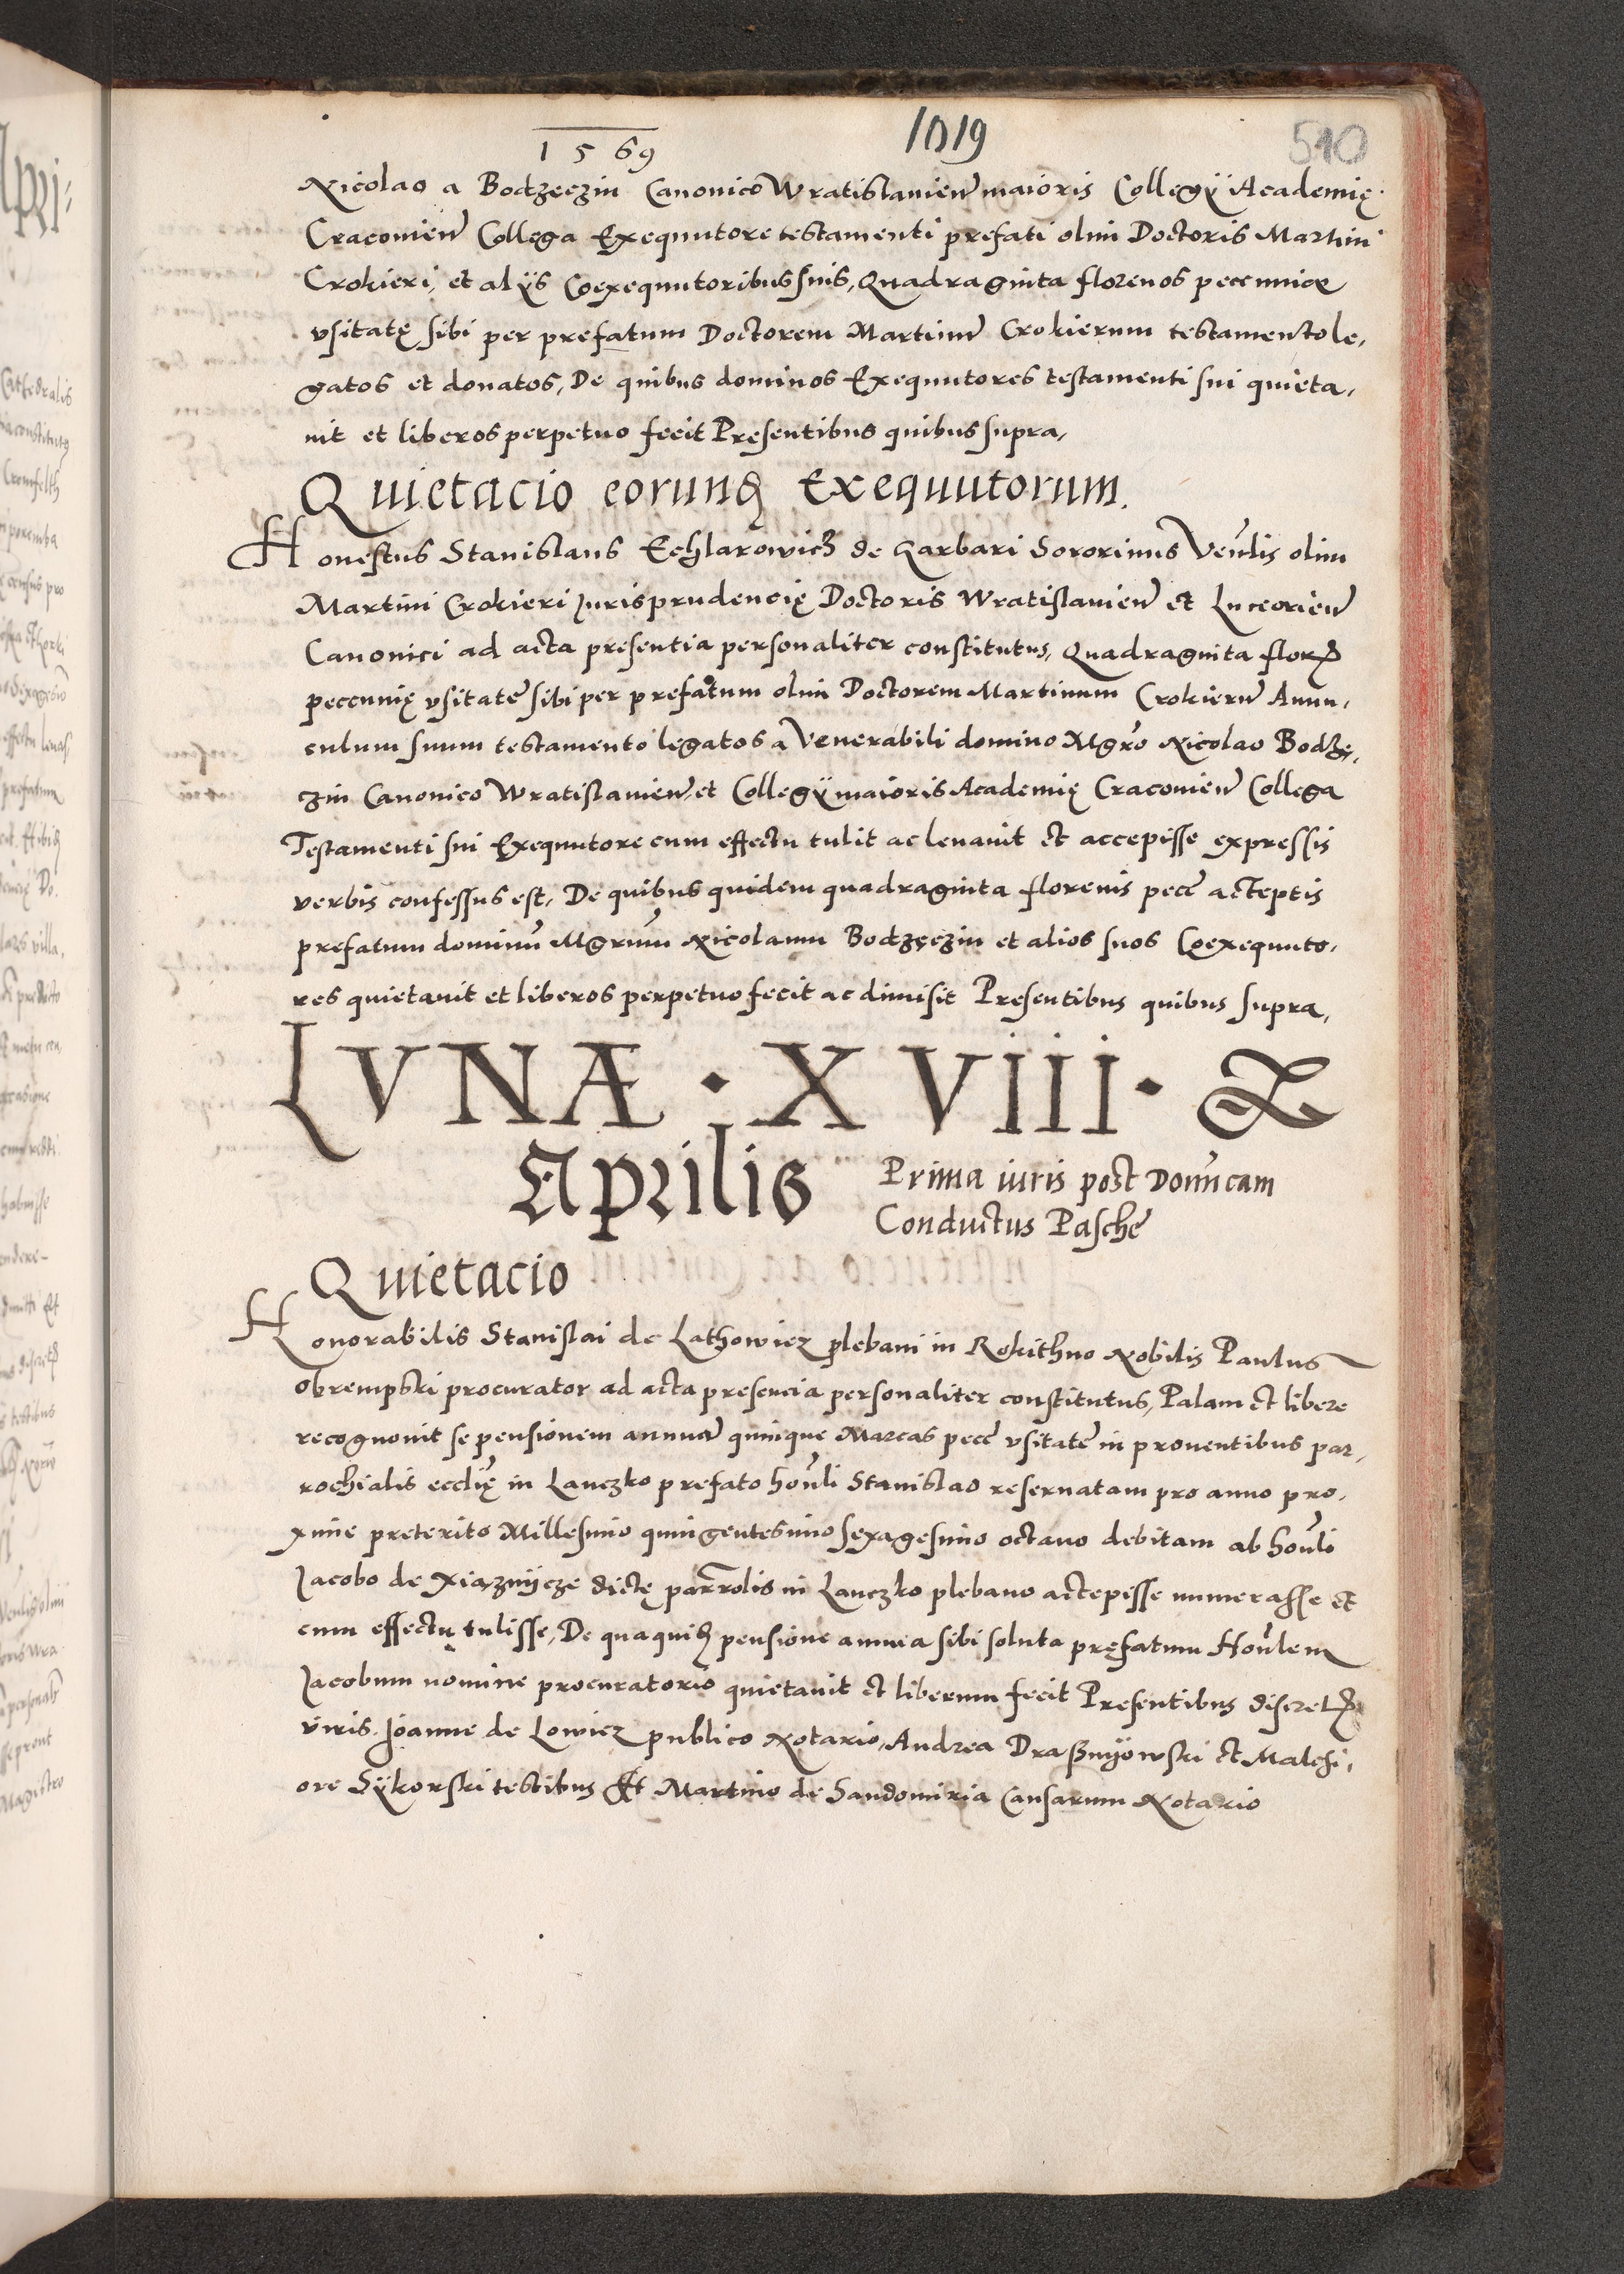 1569 1019 510
Nicolao a Bodzeczin Canonico Wratislavien maioris Collegÿ Academię
Cracovien Collega Exequutore testamenti prefati olim Doctoris Martini
Crokieri, et alÿs Coexequutoribus suis, Quadraginta florenos peccuniae
vsitatę sibi per prefatum Doctorem Martinum Crokierum testamento le,
gatos et donatos, De quibus dominos Exequutores testamenti sui quieta,
uit et liberos perpetuo fecit Presentibus quibus supra,
Quietacio eorund Exequutorum.
Honestus Stanislaus Echlarowicz de Garbari Sororinus Venlis olim
Martini Crokieri Jurisprudencię Doctoris Wratislavien et Luceorien
Canonici ad acta presentia personaliter constitutus, Quadraginta flor
peccunię vsitate sibi per prefatum olim Doctorem Martinum Crokierum Auun,
culum suum testamento legatos a Venerabili domino Mgro Nicolao Bodzę,
czin Canonico Wratislavien, et Collegÿ maioris Academię Cracovien Collega
Testamenti sui Exequutore cum effectu tulit ac levavit et accepisse expressis
verbis confessus est, De quibus quidem quadraginta florenis pecc acceptis
prefatum dominu Mgrum Nicolaum Bodzęczin et alios suos Coexequuto,
res quietavit et liberos perpetuo fecit ac dimisit Presentibus quibus supra,
LVNÆ · XVIII · &
Aprilis Prima iuris post Domcam
Conductus Paschę
Quietacio
Honorabilis Stanislai de Lathowicz plebani in Rokithno Nobilis Paulus
obrempski procurator ad acta presencia personaliter constitutus, Palam et libere
recognovit se pensionem annuam quinque Marcas pecc vsitate in proventibus par,
rochialis ecclię in Lanczko prefato honli Stanislao reservatam pro anno pro,
xime preterito Millesimo quingentesimo sexagesimo octavo debitam ab honli
Jacobo de Xiaznÿcze dictę parrolis in Lanczko plebano accepisse numerasse et
cum effectu tulisse, De qua quid pensione annua sibi soluta pręfatum Honlem
Jacobum nomine procuratorio quietavit et liberum fecit Presentibus discret
viris Joanne de Lowicz publico Notario, Andrea Drasznÿowski et Malchi,
ore Sÿkorski testibus Et Martino de Sandomiria Causarum Notario